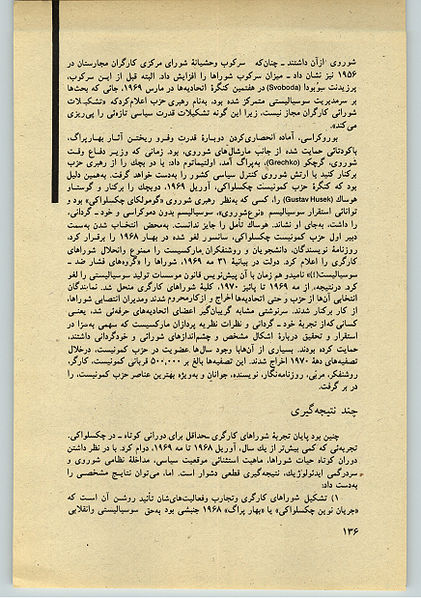 شوروی ازآن داشتند ـ چنان‌که سرکوب وحشیانهٔ شورای مرکزی کارگران مجارستان در
۱۹۵۶ نیز نشان داد ـ میزان سرکوب شوراها را افزایش داد. البته قبل از این سرکوب،
پرزیدنت سوبودا (Svoboda) در هفتمین کنگرهٔ اتحادیه‌ها در مارس ۱۹۶۹، جائی که بحث‌ها
بر سرمدیریت سوسیالیستی متمرکز شده بود، به‌نام رهبری حزب اعلام‌کردکه «تشکیلات
شورائی کارگران مجاز نیست، زیرا این گونه تشکیلات قدرت سیاسی تازه‌ئی را پی‌ریزی
می‌کند».
بوروکراسی، آماده انحصاری‌کردن دوبارهٔ قدرت وفرو ریختن آثار بهارپراگ،
باکودتائی حمایت شده از جانب مارشال‌های شوروی، بود. زمانی که وزیر دفاع وقت
شوروی، گرچکو (Grechko)، به‌پراگ آمد، اولتیماتوم داد: یا دوبچک را از رهبری حزب
برکنار کنید یا ارتش شوروی کنترل سیاسی کشور را به‌دست خواهد گرفت. به‌همین دلیل
بود که کنگرهٔ حزب کمونیست چکسلواکی، آوریل ۱۹۶۹، دوبچک را برکنار و گوستاو
هوساک (Gustav Husek) را، کسی که به‌نظر رهبری شوروی «گومولکای چکسلواکی» بود و
توانائی استقرار سوسیالیسم «نوع‌شوروی»، سوسیالیسم بدون دموکراسی و خود ـ گردانی،
را داشت، به‌جای او نشاند. هوساک تأمل را جایز ندانست. به‌محض انتخاب شدن به‌سمت
دبیر اول حزب کمونیست چکسلواکی، سانسور لغو شده در بهار ۱۹۶۸ را برقرار کرد،
روزنامهٔ نویسندگان، دانشجویان و روشنفکران مارکسیست را ممنوع وانحلال شوراهای
کارگری را اعلام کرد. دولت در بیانیهٔ ۳۱ مه ۱۹۶۹، شوراها را «گروه‌های فشار ضد ـ
سوسیالیست(!)» نامیدو هم زمان با آن پیش‌نویس قانون موسسات تولید سوسیالیستی را لغو
کرد. درنتیجه، از مه ۱۹۶۹ تا پائیز ۱۹۷۰، کلیهٔ شوراهای کارگری منحل شد. نمایندگان
انتخابی آن‌ها از حزب و حتی اتحادیه‌ها اخراج و ازکارمحروم شدند ومدیران انتصابی شوراها،
از کار برکنار شدند. سرنوشتی مشابه گریبان‌گیر اعضای اتحادیه‌های حرفه‌ئی شد، یعنی
کسانی که‌از تجربهٔ خود ـ گردانی و نظرات نظریه پردازان مارکسیست که سهمی به‌سزا در
استقرار و تحقیق دربارهٔ اشکال مشخص و چشم‌اندازهای شورائی و خودگردانی داشتند،
حمایت کرده بودند. بسیاری از آن‌هابا وجود سال‌ها عضویت در حزب کمونیست، درخلال
تصفیه‌های دههٔ ۱۹۷۰ اخراج شدند. این تصفیه‌ها بالغ بر ۵۰۰٫۰۰۰ قربانی کمونیست، کارگر،
روشنفکر، مربّی، روزنامه‌نگار، نویسنده، جوانان و به‌ویژه بهترین عناصر حزب کمونیست، را
در بر گرفت.
چند نتیجه‌گیری
چنین بود پایان تجربهٔ شوراهای کارگری ـ حداقل برای دورانی کوتاه ـ در چکسلواکی.
تجربه‌ئی که کمی بیش‌تر از یک سال، آوریل ۱۹۶۸ تا مه ۱۹۶۹، دوام کرد. با در نظر داشتن
دوران کوتاه حیات شوراها، ماهیت استثنائی موقعیت سیاسی، مداخلهٔ نظامی شوروی و
سردرگمی ایدئولوژیک، نتیجه‌گیری قطعی دشوار است. اما، می‌توان نتایج مشخصی را
به‌دست داد:
۱) تشکیل شوراهای کارگری وتجارب وفعالیت‌های‌شان تأئید روشن آن است که
«جریان نوین چکسلواکی» یا «بهار پراگ» ۱۹۶۸ جنبشی بود به‌حق سوسیالیستی وانقلابی
۱۳۶